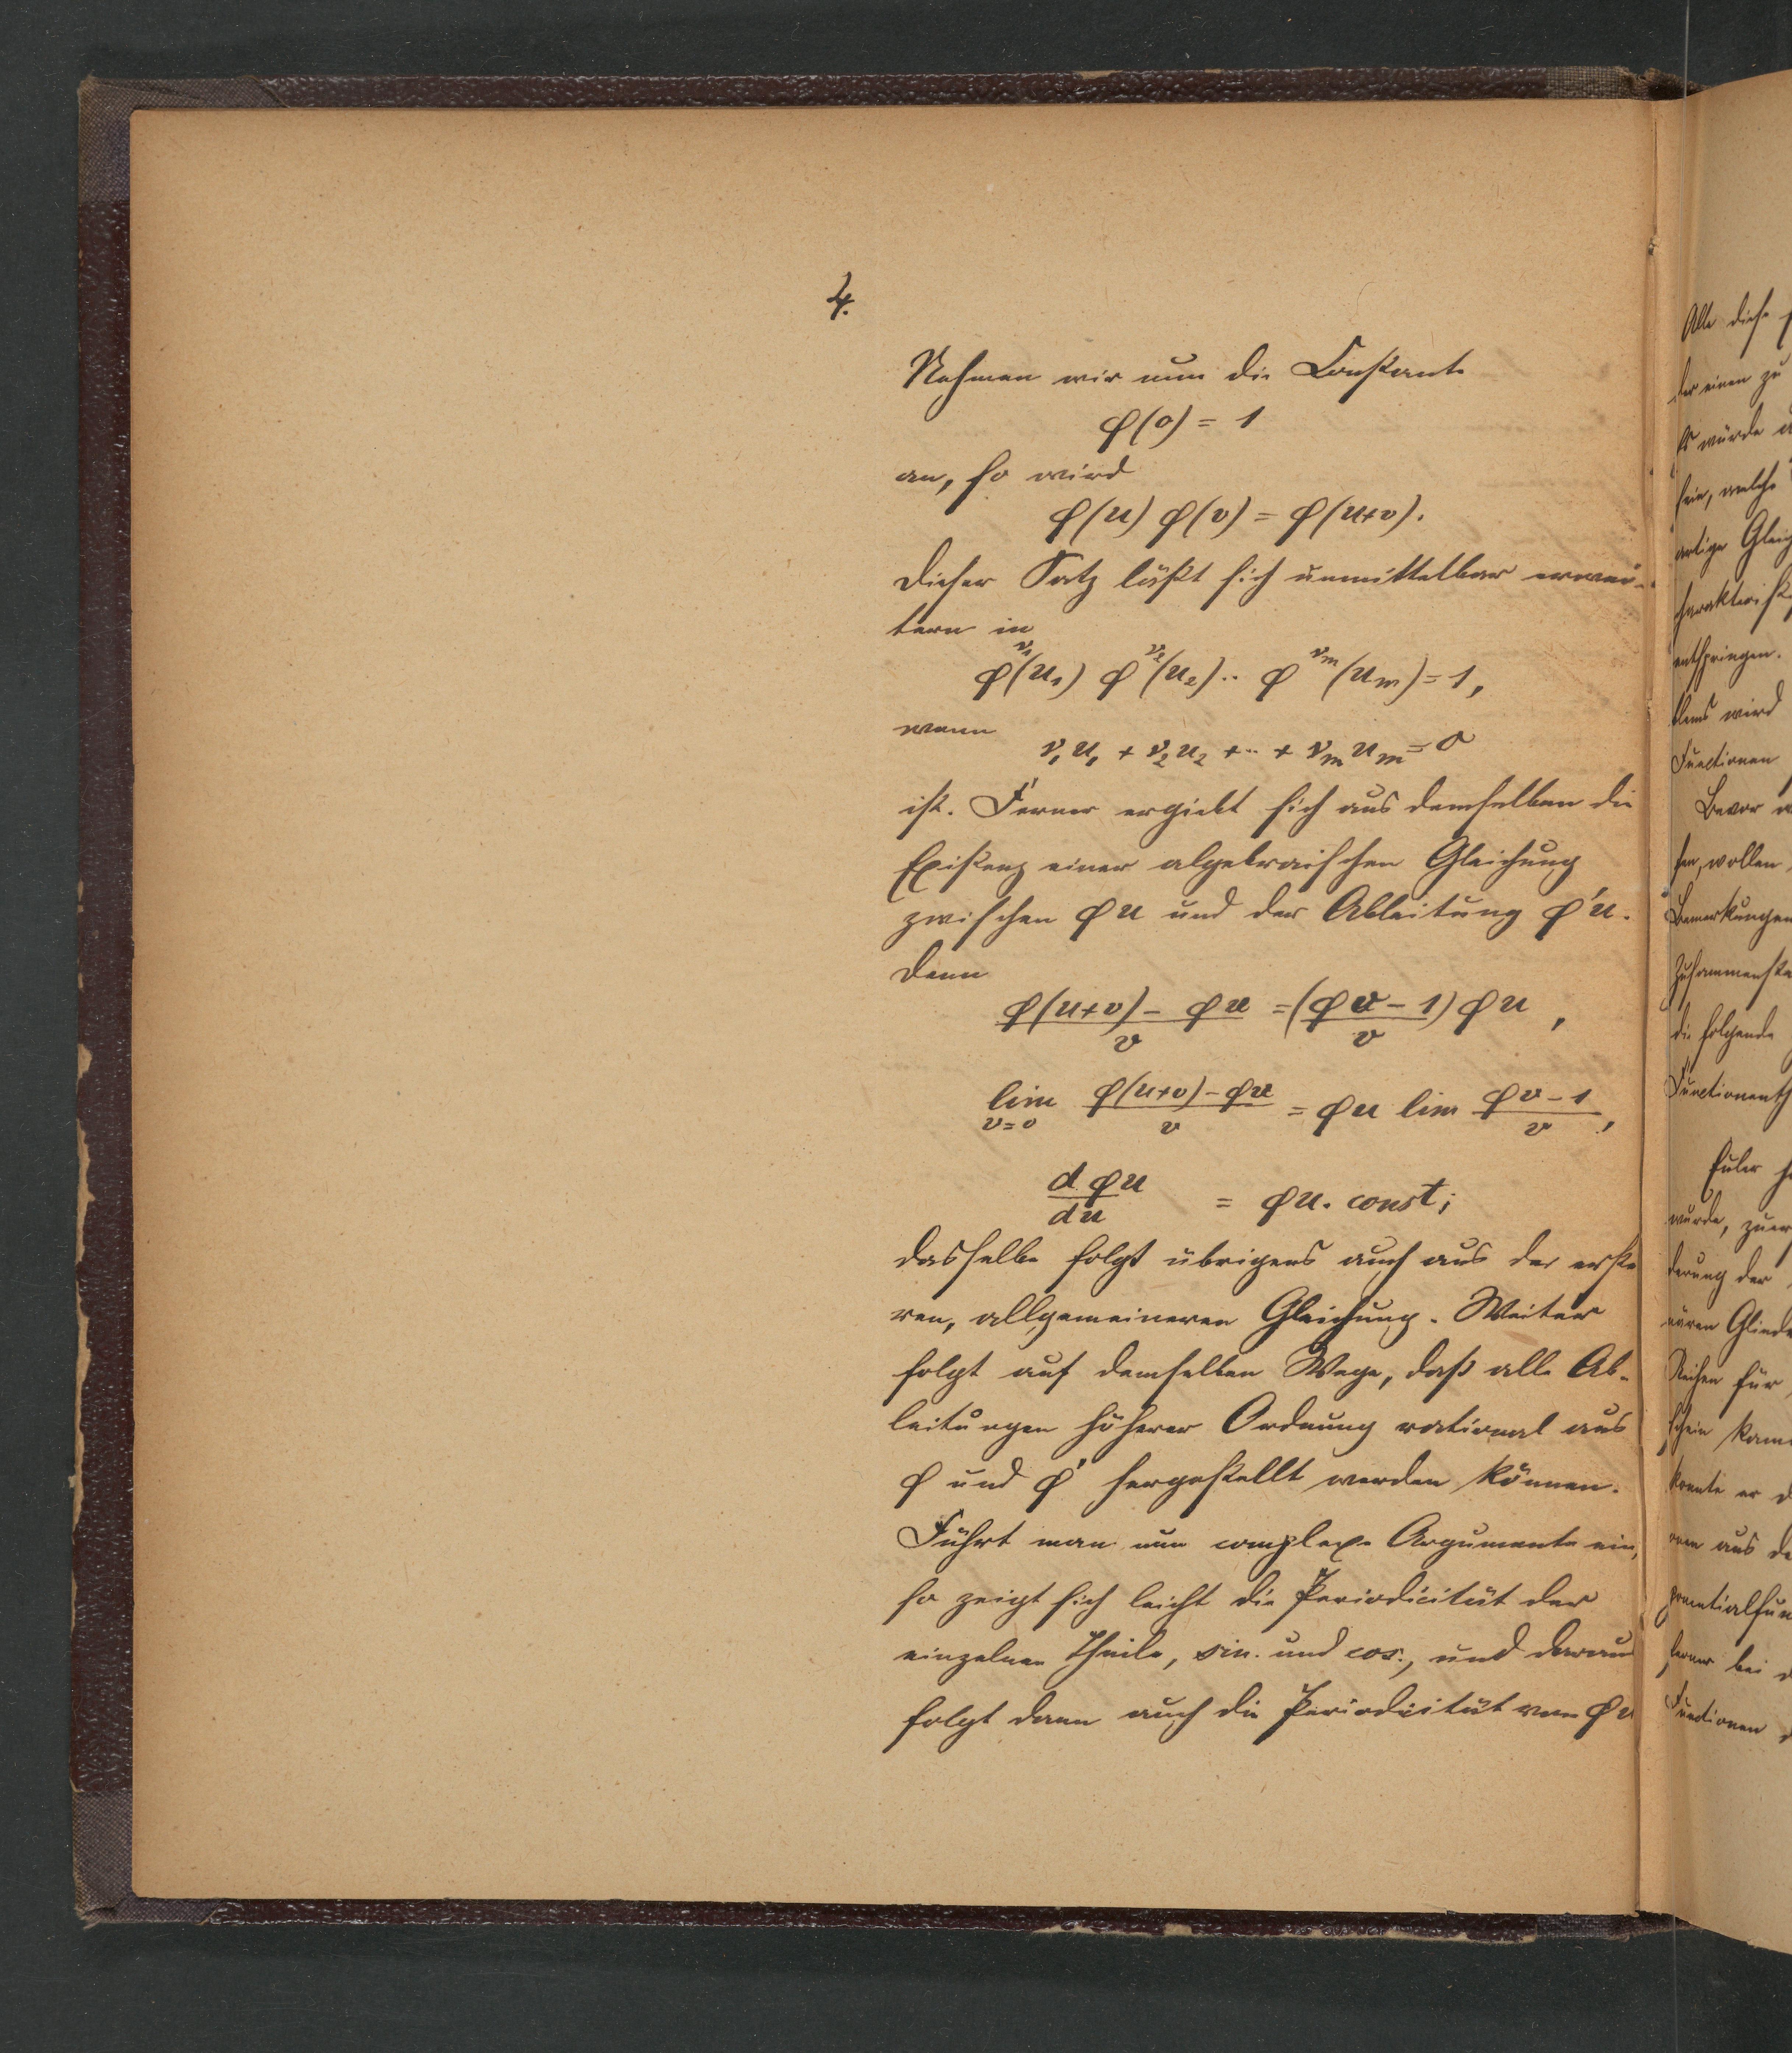 4.
Nehmen wir nun die Constante
φ(0) = 1
an, so wird
φ(u) φ(v) = φ(u+v).
Dieser Satz läßt sich unmittelbar erwei-
tern in
φ^ν₁(u₁) φ^ν₂(u₂) ·· φ^νₘ(uₘ) = 1,
wenn
ν₁u₁ + ν₂u₂ + ·· + νₘuₘ = 0
ist. Ferner ergiebt sich aus demselben die
Existenz einer algebraischen Gleichung
zwischen φu und der Ableitung φ'u.
Denn
(φ(u+v) – φu)/v = (φv – 1)/v φu,
lim v=0 (φ(u+v) – φu)/v = φu lim (φv – 1)/v,
dφu/du = φu. const;
dasselbe folgt übrigens auch aus der erste
ren, allgemeineren Gleichung. Weiter
folgt auf demselben Wege, daß alle Ab-
leitungen höherer Ordnung rational aus
φ und φ' hergestellt werden können.
Führt man nun complexe Argumente ein,
so zeigt sich leicht die Periodicität der
einzelnen Theile, sin. und cos., und daraus
folgt dann auch die Periodicität von φu
Alle diese
der einen zu
Es würde
sein, welche
artige Gleich
charakterist
entspringen.
blems wird
Functionen
Bevor
sen, wollen
Bemerkungen
Zusammenste
die folgende
Functionenth
Euler
wurde, zuer
derung der
nären Gliede
Reihen für
schein kam
konnte er d
nen aus de
ponentialfun
ferner bei d
Functionen